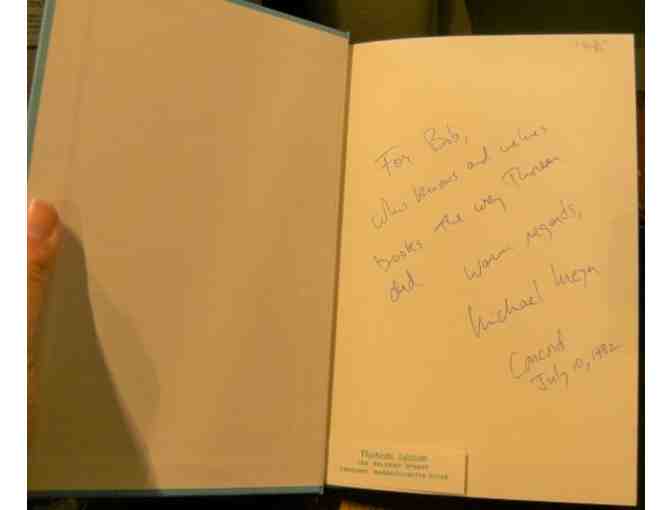 For Bob,
who knows and values
books the way Thoreau
did
Warm regards,
Michael Meyer
Concord
July 10, 1982
Thoreau Lyceum
156 Belknap Street
Concord, Massachusetts